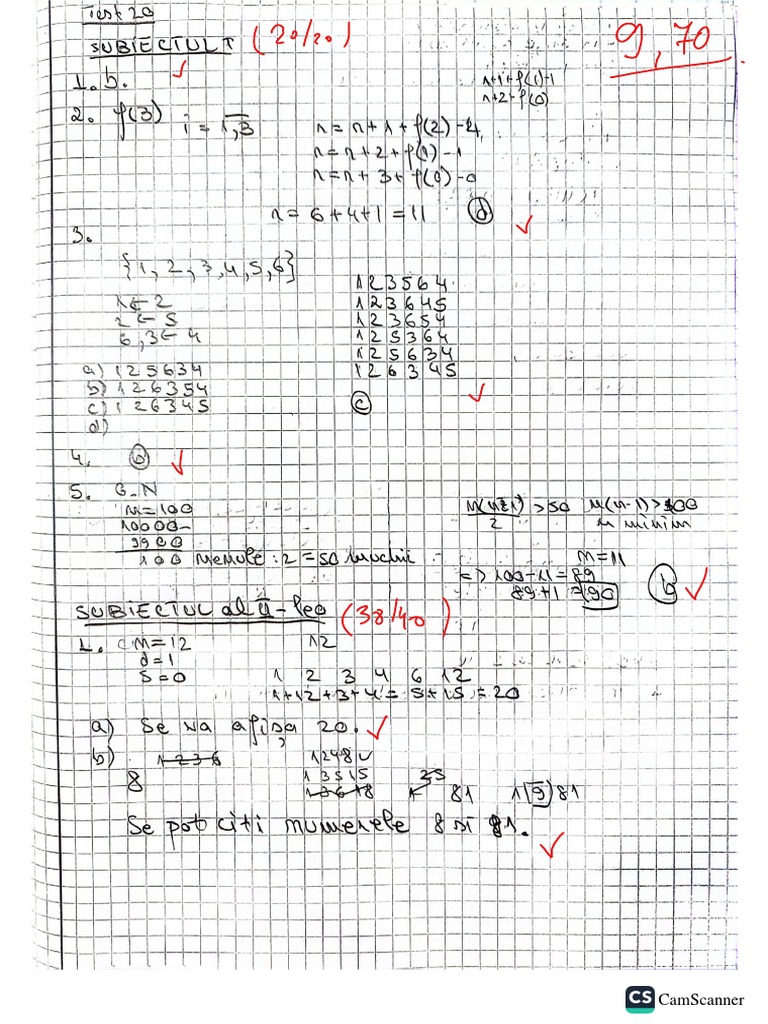 Test 20
SUBIECTUL I (20/20) 9,70
1. b.
n+1+f(1)-1
n+2+f(0)
2. f(3) i = 1,3 n = n + 1 + f(2) - 4
n = n + 2 + f(1) - 1
n = n + 3 + f(0) - 0
n = 6 + 4 + 1 = 11 (d)
3.
{1, 2, 3, 4, 5, 6}
1 ← 2
2 ← 5
6, 3 ← 4
a) 1 2 5 6 3 4
b) 1 2 6 3 5 4
c) 1 2 6 3 4 5
d)
1 2 3 5 6 4
1 2 3 6 4 5
1 2 3 6 5 4
1 2 5 3 6 4
1 2 5 6 3 4
1 2 6 3 4 5
(c)
4.
5. G.N
n = 100
10000-
9900
100 nenule : 2 = 50 muchii
n(n-1)/2 > 50 n(n-1) > 100
n minim
n = 11
=> 100 - 11 = 89
89 + 1 = 90 (b)
SUBIECTUL al II-lea (38/40)
1. n = 12 12
d = 1
s = 0
1 2 3 4 6 12
1 + 12 + 3 + 4 = 5 + 15 = 20
a) Se va afișa 20.
b) 1 2 3 6
8
1 2 4 8
1 3 5 15
25
81 1 9 81
Se pot citi numerele 8 și 81.
CS CamScanner